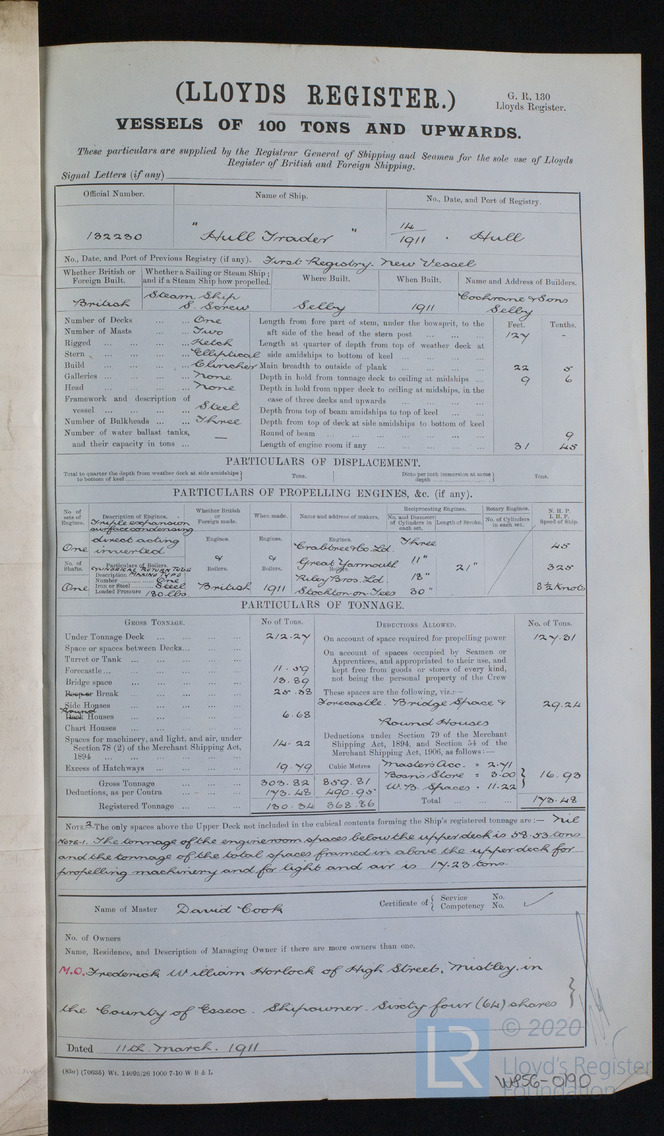 (LLOYDS REGISTER.)
G. R. 130
Lloyds Register.
VESSELS OF 100 TONS AND UPWARDS.
These particulars are supplied by the Registrar General of Shipping and Seamen for the sole use of Lloyds
Register of British and Foreign Shipping.
Signal Letters (if any)
Official Number. Name of Ship. No., Date, and Port of Registry.
132230 "Hull Trader" 14/1911 . Hull
No., Date, and Port of Previous Registry (if any). First Registry. New Vessel
Whether British or Foreign Built. Whether a Sailing or Steam Ship; and if a Steam Ship how propelled. Where Built. When Built. Name and Address of Builders.
British Steam Ship S. Screw Selby 1911 Cochrane & Sons Selby
Number of Decks ... ... One Length from fore part of stem, under the bowsprit, to the Feet. Tenths.
Number of Masts ... ... Two aft side of the head of the stern post ... ... ... 127 -
Rigged ... ... ... Ketch Length at quarter of depth from top of weather deck at
Stern ... ... ... Elliptical side amidships to bottom of keel ... ... ...
Build ... ... ... Clincher Main breadth to outside of plank ... ... ... 22 5
Galleries ... ... ... None Depth in hold from tonnage deck to ceiling at midships ... 9 6
Head ... ... ... None Depth in hold from upper deck to ceiling at midships, in the
Framework and description of case of three decks and upwards
vessel ... ... ... Steel Depth from top of beam amidships to top of keel ... ...
Number of Bulkheads ... ... Three Depth from top of deck at side amidships to bottom of keel
Number of water ballast tanks, — Round of beam ... ... ... 9
and their capacity in tons ... Length of engine room if any ... ... ... 31 45
PARTICULARS OF DISPLACEMENT.
Total to quarter the depth from weather deck at side amidships to bottom of keel Tons. Ditto per inch immersion at same depth Tons.
PARTICULARS OF PROPELLING ENGINES, &c. (if any).
No. of sets of Engines. Description of Engines. Whether British or Foreign made. When made. Name and address of makers. Reciprocating Engines. Rotary Engines. N. H. P. I. H. P. Speed of Ship.
No. and Diameter of Cylinders in each set. Length of Stroke. No. of Cylinders in each set.
Triple expansion
surface condensing
direct acting Engines. Engines. Engines. Three
One inverted Crabtree & Co. Ld. 45
No. of Shafts. Cylindrical Return Tube & & Great Yarmouth 11" 21" 325
Description Marine Type Boilers. Boilers. Boilers.
Number One Riley Bros. Ld. 18"
One Iron or Steel Steel British 1911 Stockton on Tees 30" 8½ Knots
Loaded Pressure 180 lbs.
PARTICULARS OF TONNAGE.
GROSS TONNAGE. No of Tons. DEDUCTIONS ALLOWED. No. of Tons.
Under Tonnage Deck ... ... 212.27 On account of space required for propelling power 127.31
Space or spaces between Decks... On account of spaces occupied by Seamen or
Turret or Tank ... ... Apprentices, and appropriated to their use, and
Forecastle... ... ... 11.59 kept free from goods or stores of every kind,
Bridge space ... ... 13.89 not being the personal property of the Crew
Break ... ... 25.38 These spaces are the following, viz.:—
Side Houses Forecastle. Bridge Space & 29.24
Round Houses ... ... 6.68 Round Houses
Chart Houses ... ... Deductions under Section 79 of the Merchant
Spaces for machinery, and light, and air, under Shipping Act, 1894, and Section 54 of the
Section 78 (2) of the Merchant Shipping Act, 14.22 Merchant Shipping Act, 1906, as follows:—
1894
Excess of Hatchways ... 19.79 Cubic Metres Masters Acc. = 2.71
Gross Tonnage 303.82 859.81 Boosns Store = 3.00 16.93
Deductions, as per Contra 173.48 490.95 W.B. Spaces = 11.22
Registered Tonnage ... 130.34 368.86 Total 173.48
NOTE 2.—The only spaces above the Upper Deck not included in the cubical contents forming the Ship's registered tonnage are:— Nil
Note 1. The tonnage of the engine room spaces below the upper deck is 58.53 tons
and the tonnage of the total spaces framed in above the upper deck for
propelling machinery and for light and air is 17.23 tons.
Name of Master David Cook Certificate of { Service No. Competency No.
No. of Owners
Name, Residence, and Description of Managing Owner if there are more owners than one.
M.O. Frederick William Horlock of High Street, Mistley, in
the County of Essex. Shipowner. Sixty four (64) shares
Dated 11th March, 1911
© 2020
LR
Lloyd's Register
Foundation
W856-0190